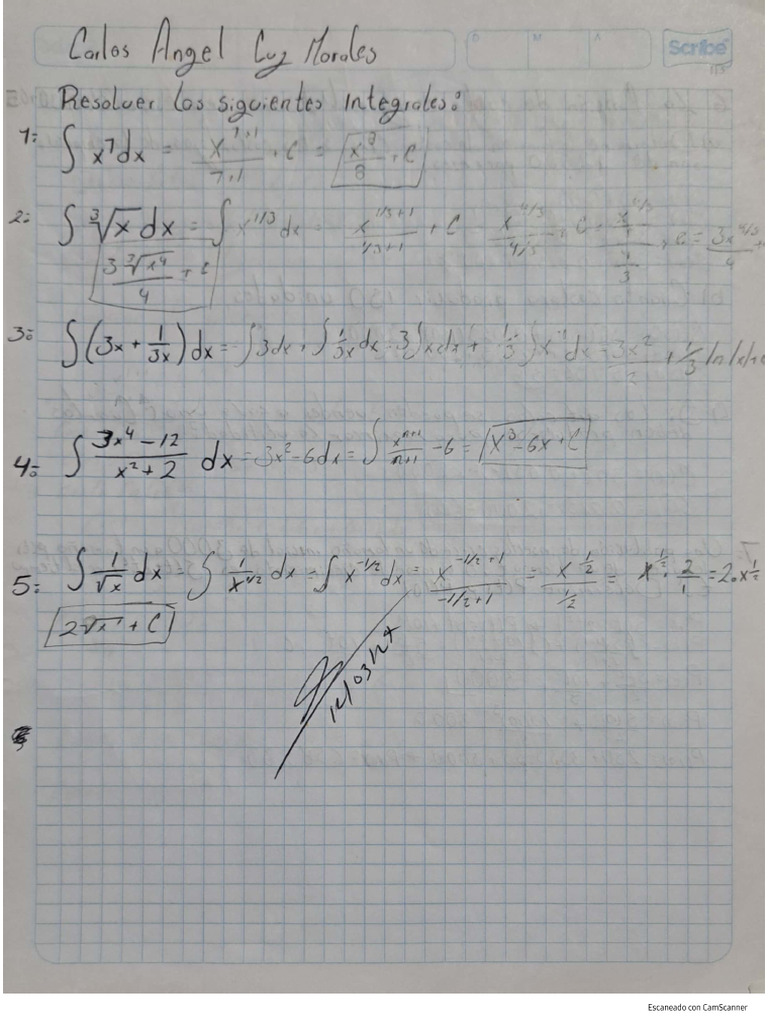 Carlos Angel Cuz Morales
D M A
Scribe
Resolver las siguientes integrales:
1: ∫ x⁷ dx = x⁷⁺¹/7+1 + C = x⁸/8 + C
2: ∫ ∛x dx = ∫ x^1/3 dx = x^1/3+1 / 1/3+1 + C = x^4/3 / 4/3 + C = x^4/3/1 / 4/3 + C = 3x^4/3 / 4 +
3∛x⁴/4 + C
3: ∫ (3x + 1/3x) dx = ∫ 3dx + ∫ 1/3x dx = 3∫ x dx + 1/3 ∫ x⁻¹ dx = 3x²/2 + 1/3 ln|x|+c
4: ∫ 3x⁴ - 12 / x² + 2 dx = 3x² - 6 dx = ∫ xⁿ⁺¹/n+1 - 6 = x³ - 6x + C
5: ∫ 1/√x dx = ∫ 1/x^1/2 dx = ∫ x^-1/2 dx = x^-1/2+1 / -1/2+1 = x^1/2 / 1/2 = x^1/2 · 2/1 = 2·x^1/2
2√x + C
Escaneado con CamScanner